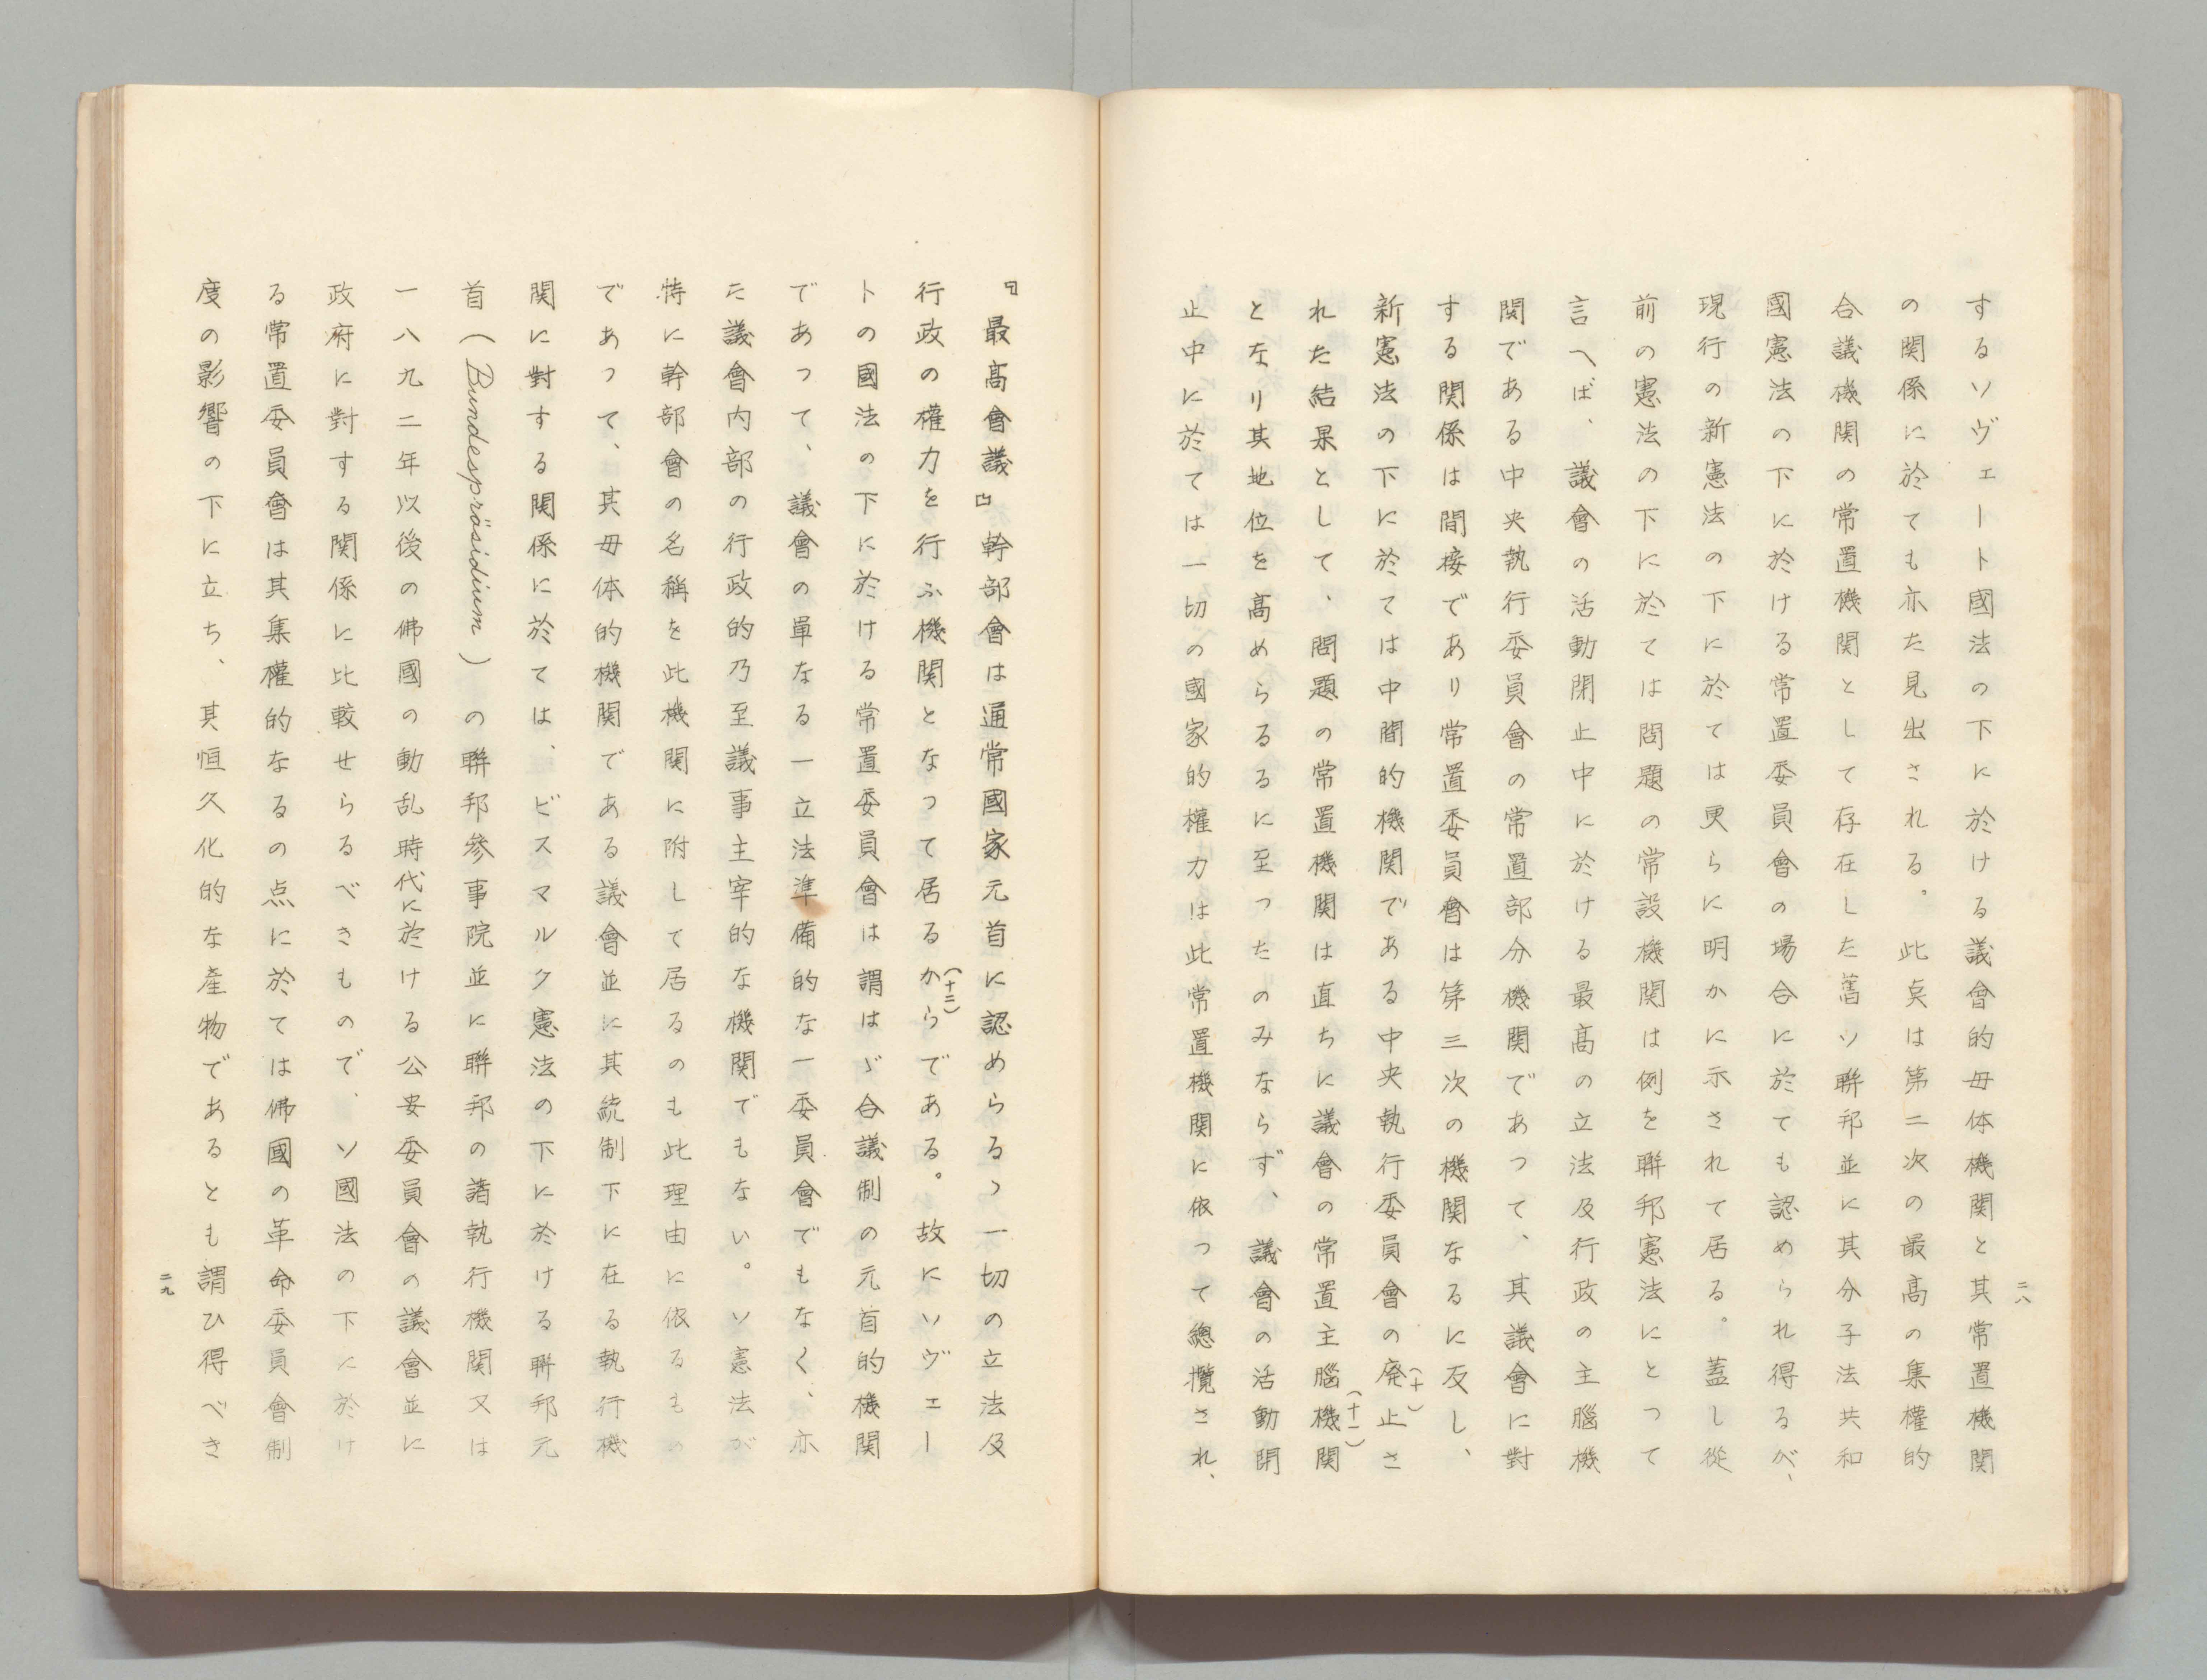 二八
するソヴェート國法の下に於ける議會的母体機関と其常置機関
の関係に於ても亦た見出される。此奌は第二次の最高の集權的
合議機関の常置機関として存在した舊ソ聯邦並に其分子法共和
國憲法の下に於ける常置委員會の場合に於ても認められ得るが、
現行の新憲法の下に於ては更らに明かに示されて居る。蓋し從
前の憲法の下に於ては問題の常設機関は例を聯邦憲法にとつて
言へば、議會の活動閉止中に於ける最高の立法及行政の主腦機
関である中央執行委員會の常置部分機関であつて、其議會に對
する関係は間接であり常置委員會は第三次の機関なるに反し、
新憲法の下に於ては中間的機関である中央執行委員會の廃止さ(十)
れた結果として、問題の常置機関は直ちに議會の常置主腦機関(十一)
となり其地位を高めらるるに至つたのみならず、議會の活動閉
止中に於ては一切の國家的權力は此常置機関に依つて總攬され、
『最高會議』幹部會は通常國家元首に認めらるゝ一切の立法及
行政の權力を行ふ機関となつて居るからである。故にソヴェー(十二)
トの國法の下に於ける常置委員會は謂はゞ合議制の元首的機関
であつて、議會の單なる一立法準備的な一委員會でもなく、亦
た議會内部の行政的乃至議事主宰的な機関でもない。ソ憲法が
特に幹部會の名稱を此機関に附して居るのも此理由に依るもの
であつて、其母体的機関である議會並に其統制下に在る執行機
関に對する関係に於ては、ビスマルク憲法の下に於ける聯邦元
首(Bundespräsidium)の聯邦參事院並に聯邦の諸執行機関又は
一八九二年以後の佛國の動乱時代に於ける公安委員會の議會並に
政府に對する関係に比較せらるべきもので、ソ國法の下に於け
る常置委員會は其集權的なるの点に於ては佛國の革命委員會制
度の影響の下に立ち、其恒久化的な產物であるとも謂ひ得べき
二九